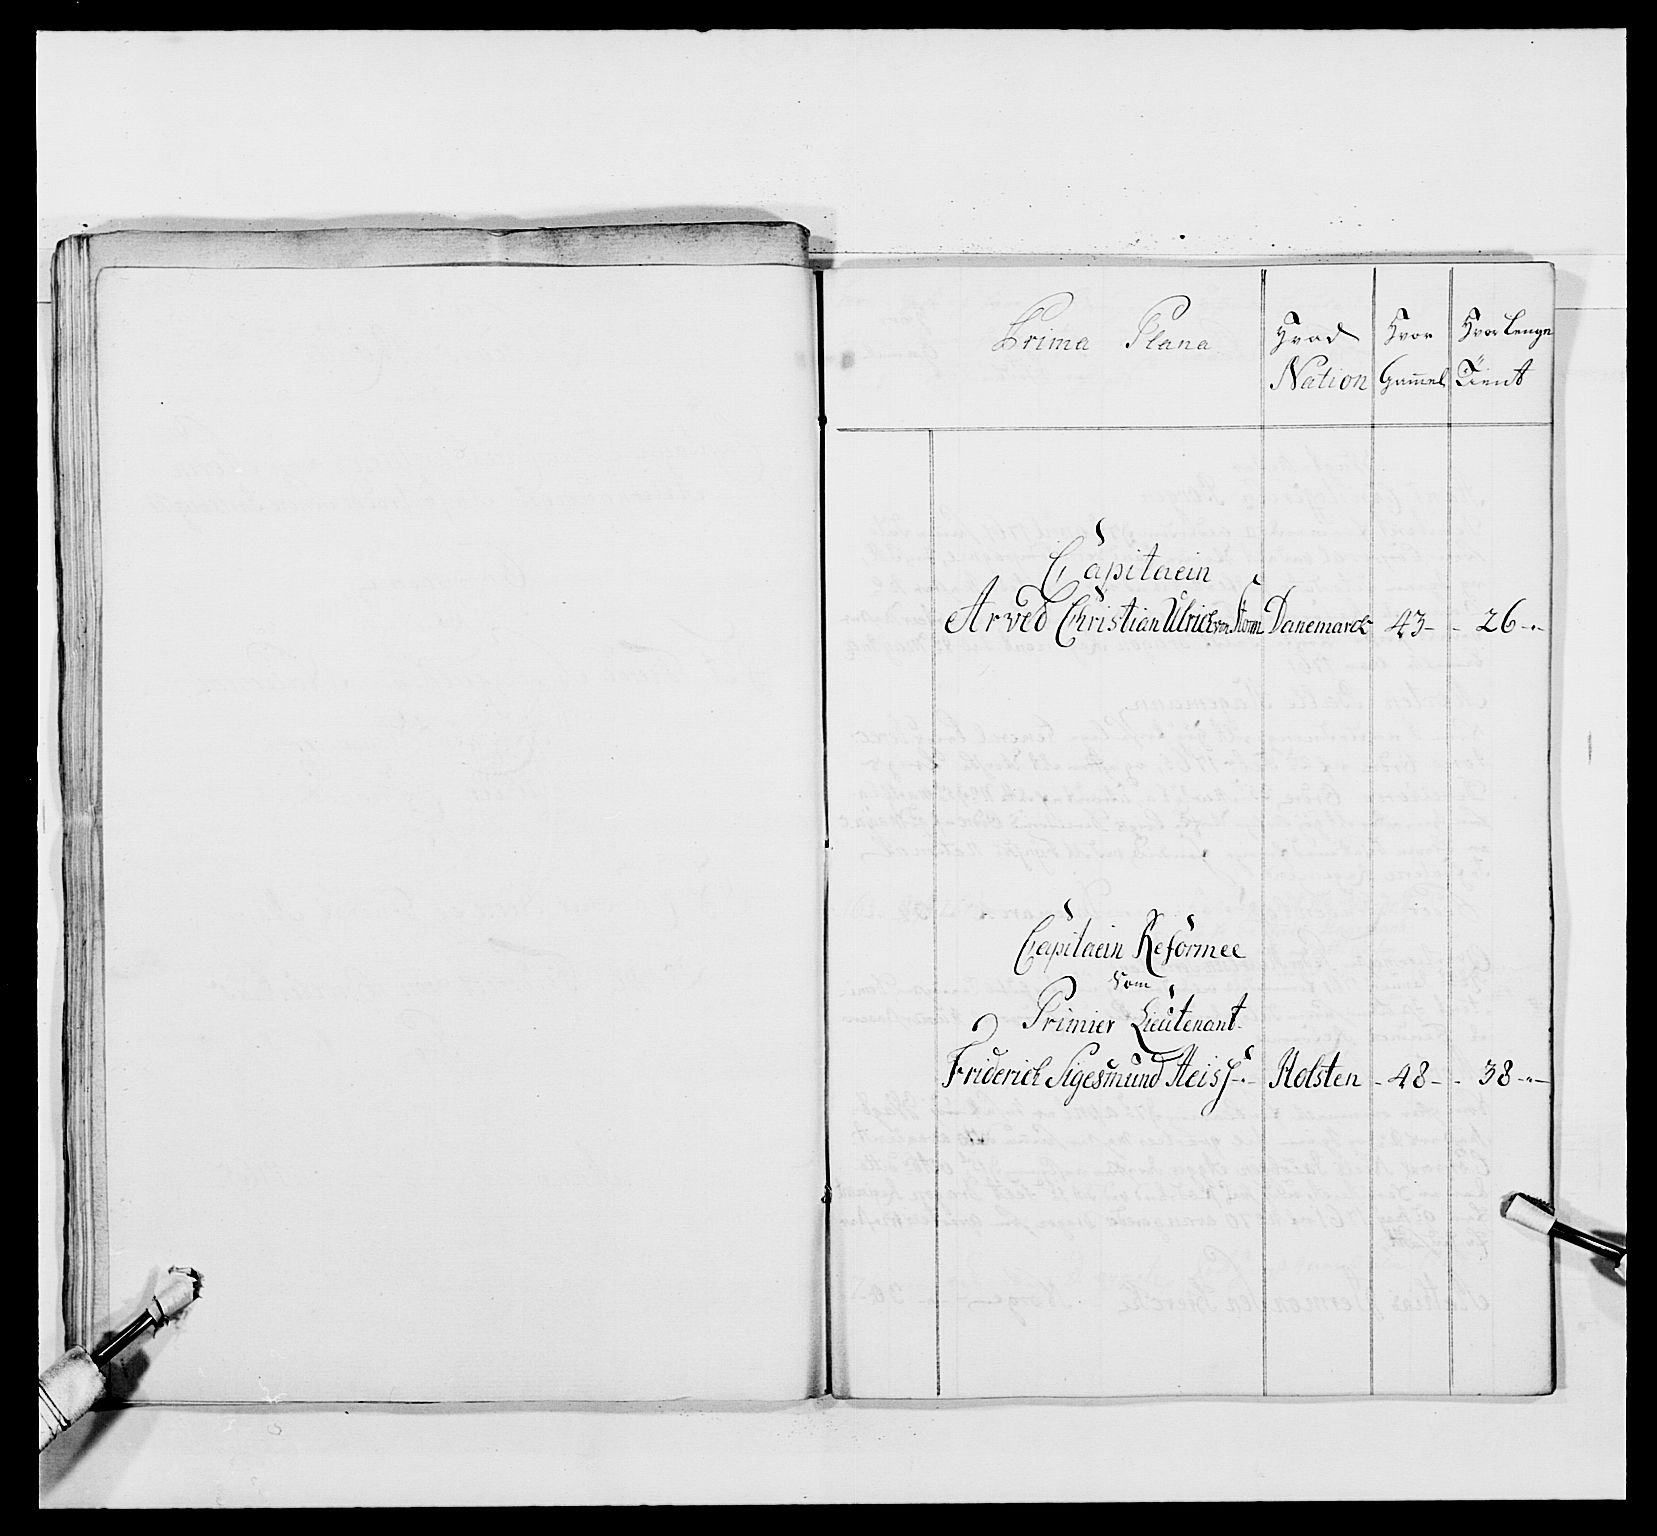 Prima Plana
Hvad Nation
Hvor Gam̄el
Hvor Lenge Tient
Capitaein
Arved Christian Ulrich von Storm Danemarck 43 - - 26 -
Capitaein Reformee
Som
Primier Lieutenant
Friderich Sigesmund Heis - Holsten - 48 - - 38 -